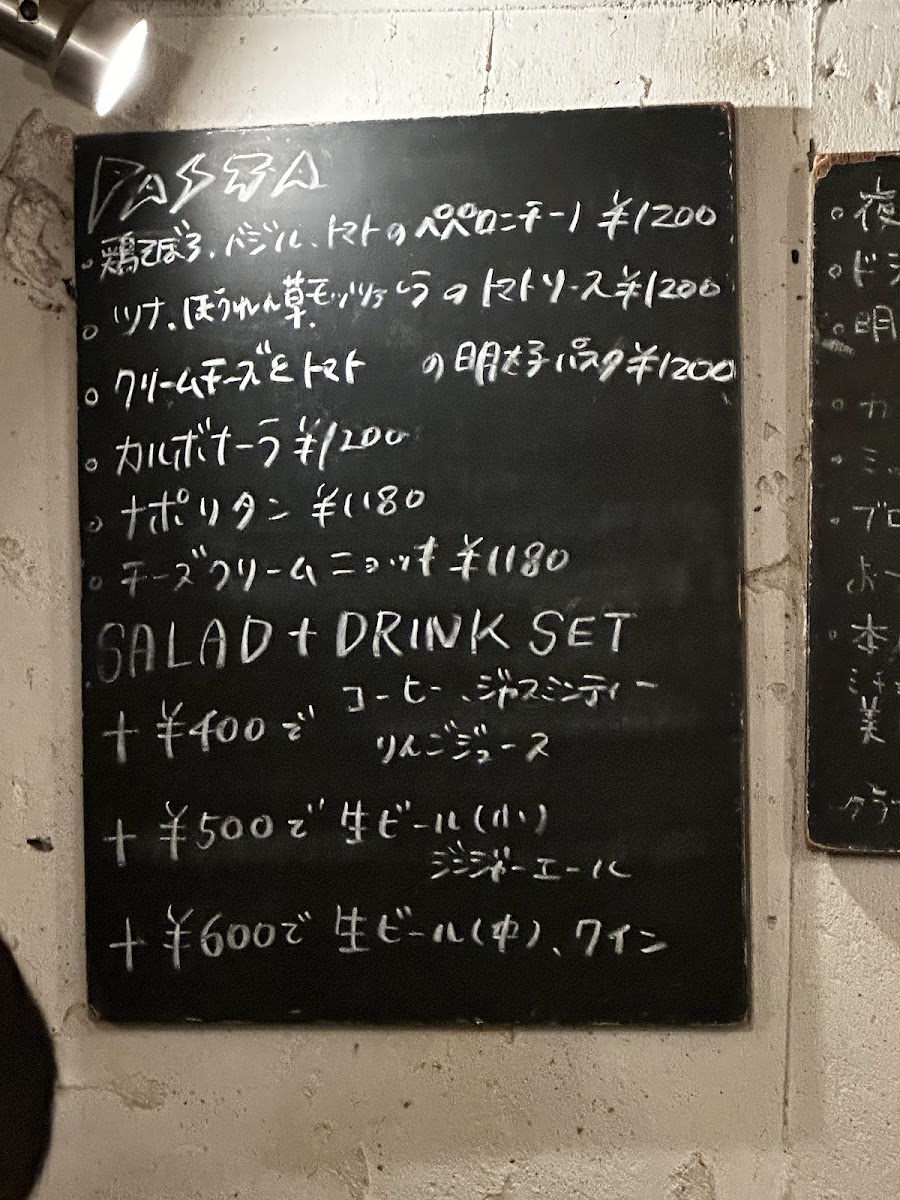 PASTA
。鶏そぼろ、バジル、トマトのペペロンチーノ ¥1200
。ツナ、ほうれん草、モッツァレラのトマトソース ¥1200
。クリームチーズとトマト の明太子パスタ ¥1200
。カルボナーラ ¥1200
。ナポリタン ¥1180
。チーズクリームニョッキ ¥1180
SALAD + DRINK SET
+ ¥400で コーヒー、ジャスミンティー
りんごジュース
+ ¥500で 生ビール(小)
ジンジャーエール
+ ¥600で 生ビール(中)、ワイン
。夜
。ド
。明
。カ
。ミッ
。ブロ
よっ
。本
ミチ
美
クラ